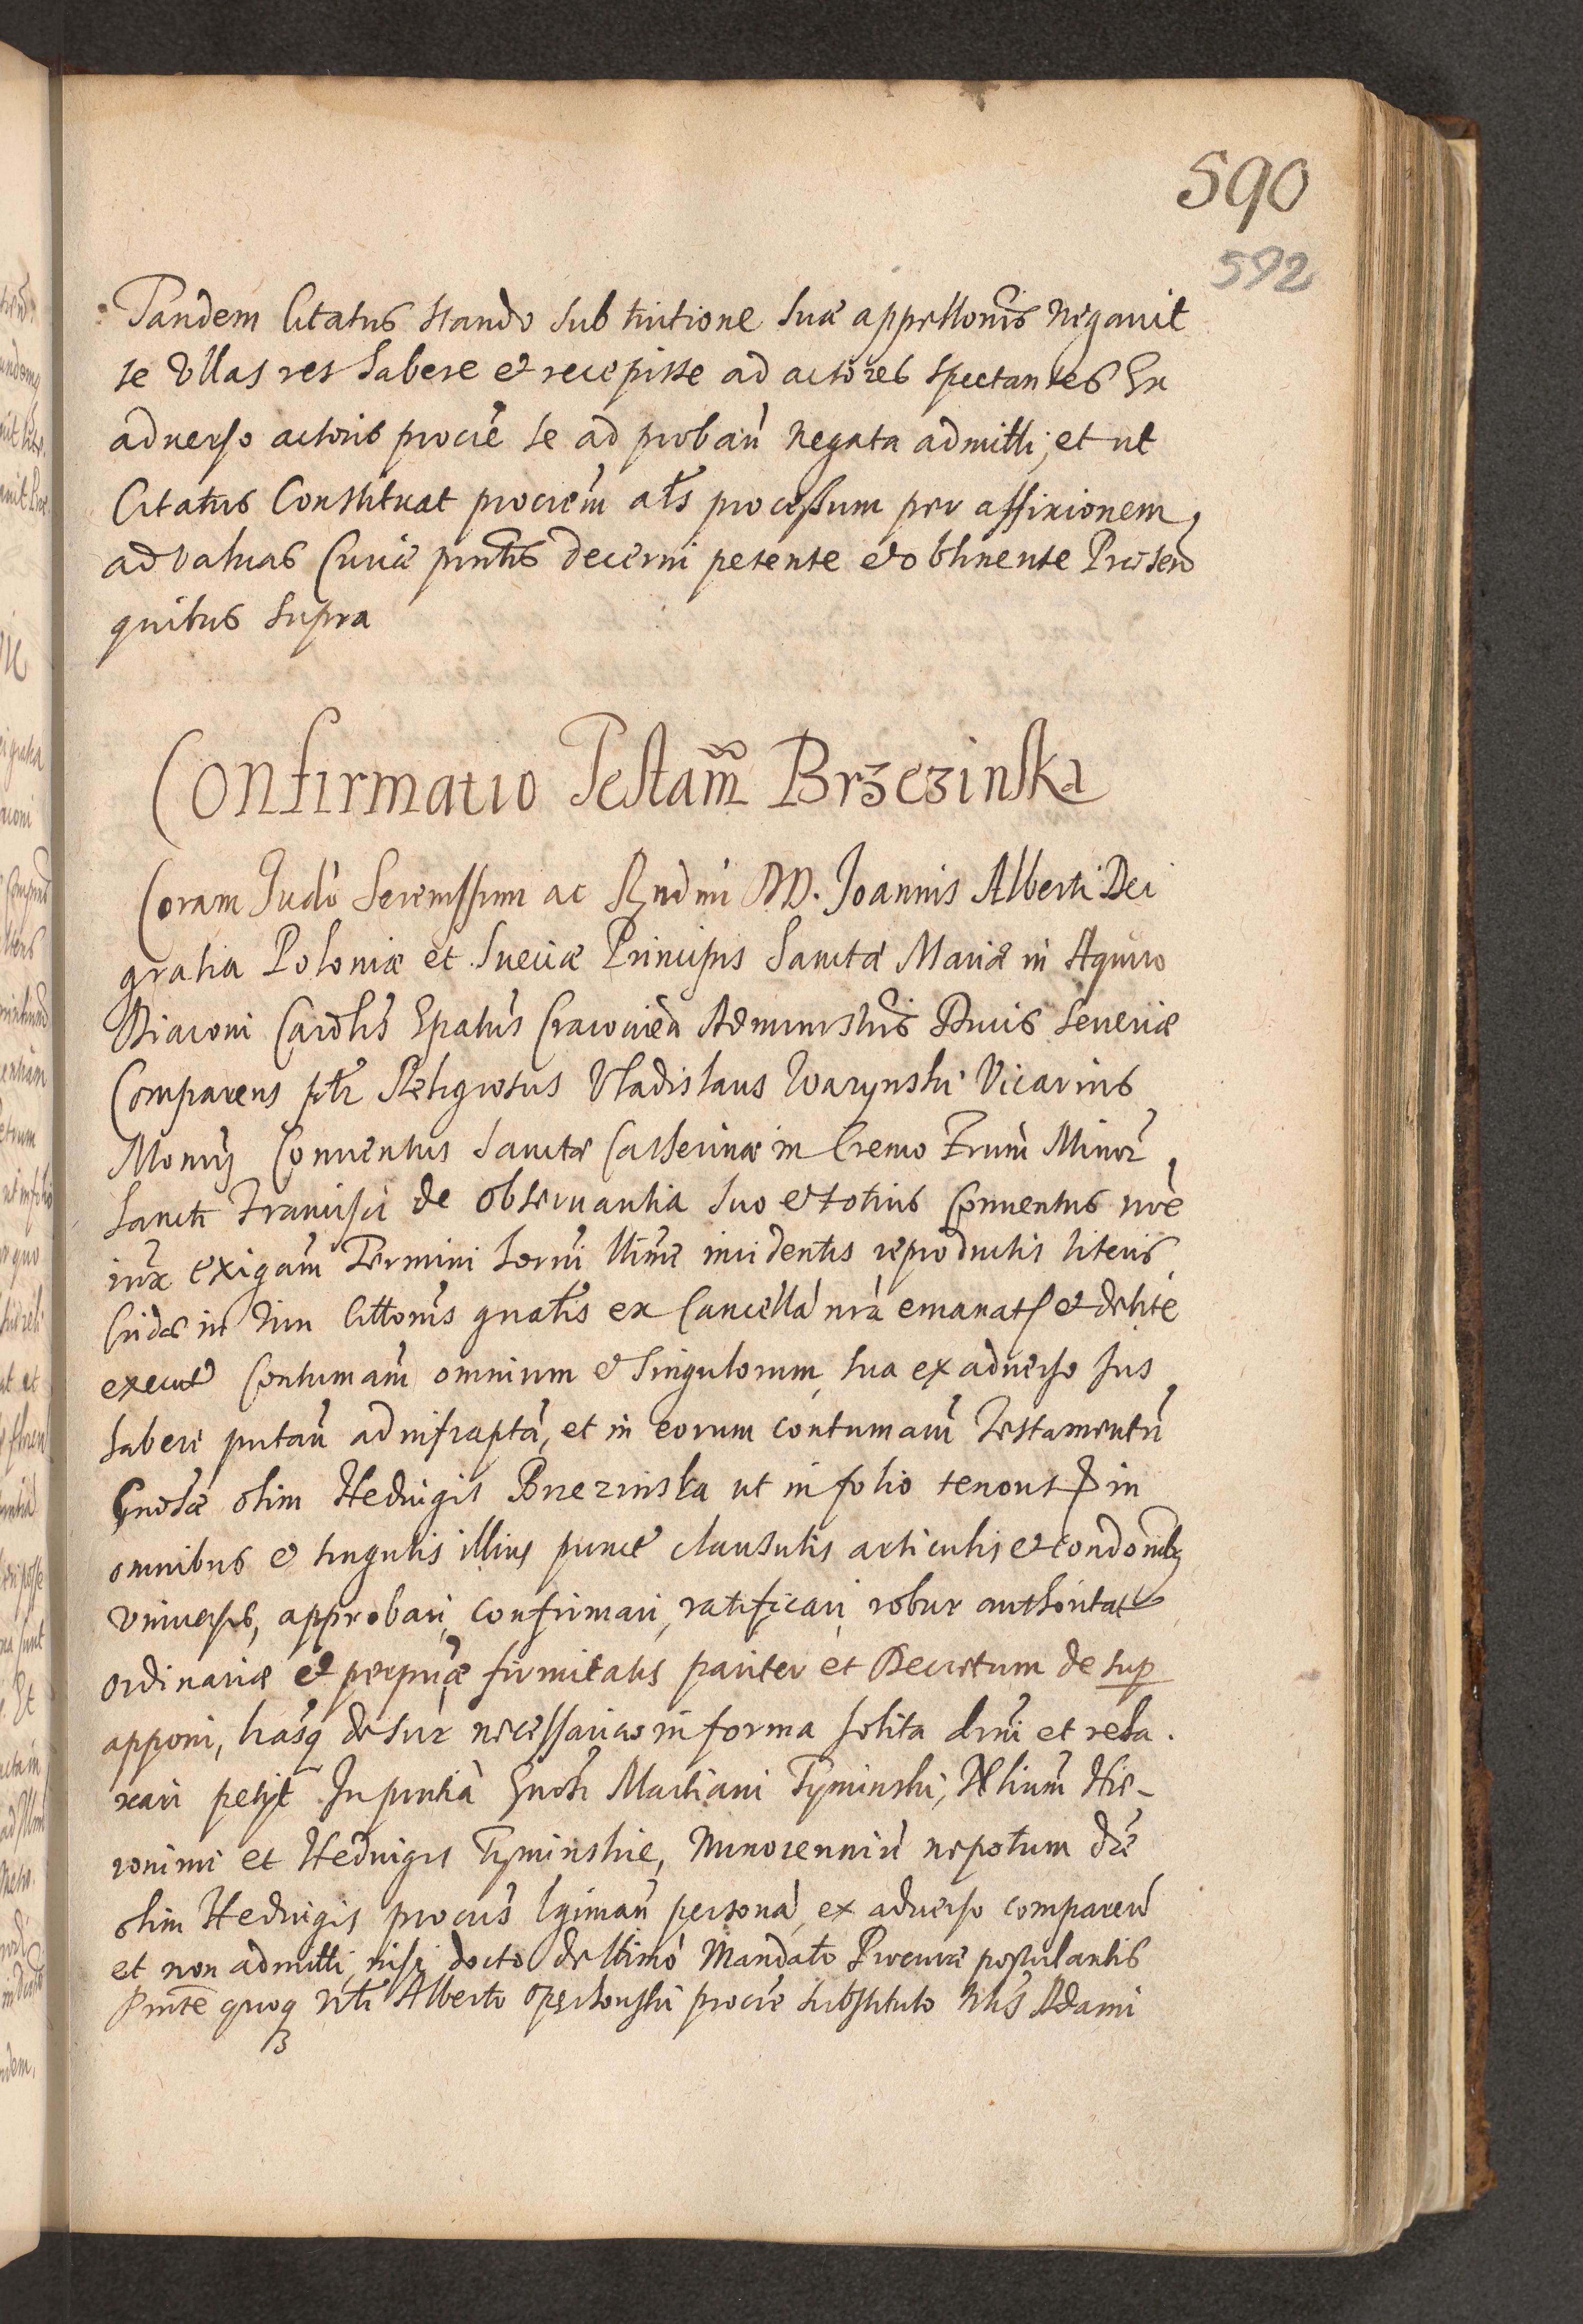 590
592
Tandem Citatus stando sub tuitione suæ appellonis negavit
se Ullas res habere et recepisse ad actores spectantes Ex
adverso actoris procrē se ad proban̄ negata admitti, et ut
Citatus Constituat procrem als processum per affixionem
ad valvas Curiæ pntis decerni petente et obtinente Præsen
quibus supra
Confirmatio Testam̄ Brzezinska
Coram Judō Serenissimi ac Rndmi DD. Joannis Alberti Dei
gratia Poloniæ et Sueciæ Principis Sanctæ Mariæ in Aquiro
Diaconi Cardlis Epatus Cracovien Administris Ducis Severiæ
Comparens ptr Religiosus Vladislaus Warynski Vicarius
Monrij Conventus Sanctæ Catherinæ in Cremo Frum Minor
Sancti Francisci de observantia suo et totius Conventus noē
iux exigam Termini horni llime incidentis reproductis literis
Cridæ in vim Citōnis gnalis ex Cancella nrā emanat et debite
execut Contumam omnium et singulorum, sua ex adverso jus
habere putan̄ ad infraptā, et in eorum contumam Testamentū
Gnosæ olim Hedvigis Brzezinska ut in folio tenoris in
omnibus et singulis illius punct clausulis articulis et condonibq
universis, approbari, confirmari, ratificari, robur authoritat
ordinariæ et perpuæ firmitatis pariter et Decretum desup
apponi, hasq desur necessarias in forma solita drni et rela.
xari petijt In pntiā Gnosi Martiani Tyminski, Nlium Hie-
ronimi et Hedvigis Tyminskie, Minorenniū nepotum dǣ
olim Hedvigis procris lgiman̄ personā, ex adverso comparen
et non admitti, nisi docto de ltimo Mandato Procuræ postulantis
Pnte quoq Nli Alberto procre substituto Nlis Adami